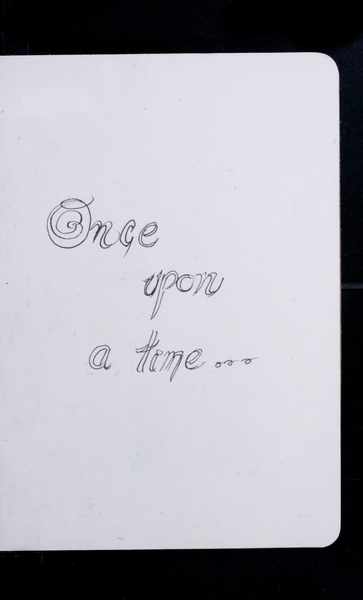 Once
upon
a time...